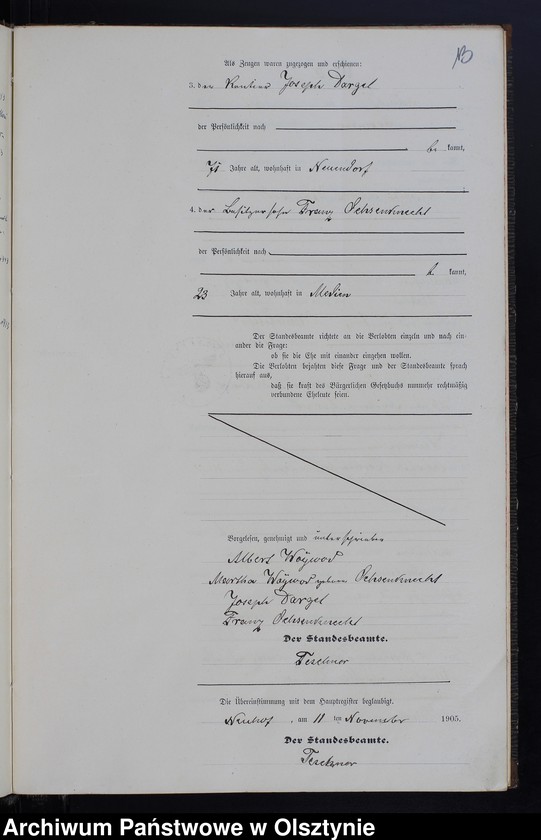 13
Als Zeugen waren zugezogen und erschienen:
3. der Rentner Joseph Darzel
der Persönlichkeit nach
be kannt,
71 Jahre alt, wohnhaft in Neuendorf
4. der Besitzersohn Franz Ochsenknecht
der Persönlichkeit nach
b. kannt,
23 Jahre alt, wohnhaft in Medien
Der Standesbeamte richtete an die Verlobten einzeln und nach ein-
ander die Frage:
ob sie die Ehe mit einander eingehen wollen.
Die Verlobten bejahten diese Frage und der Standesbeamte sprach
hierauf aus,
daß sie kraft des Bürgerlichen Gesetzbuchs nunmehr rechtmäßig
verbundene Eheleute seien.
Vorgelesen, genehmigt und unterschrieben
Albert Woywod
Martha Woywod geborene Ochsenknecht
Joseph Darzel
Franz Ochsenknecht
Der Standesbeamte.
Teschner
Die Übereinstimmung mit dem Hauptregister beglaubigt.
Neuhof, am 11 ten November 1905.
Der Standesbeamte.
Teschner
Archiwum Państwowe w Olsztynie